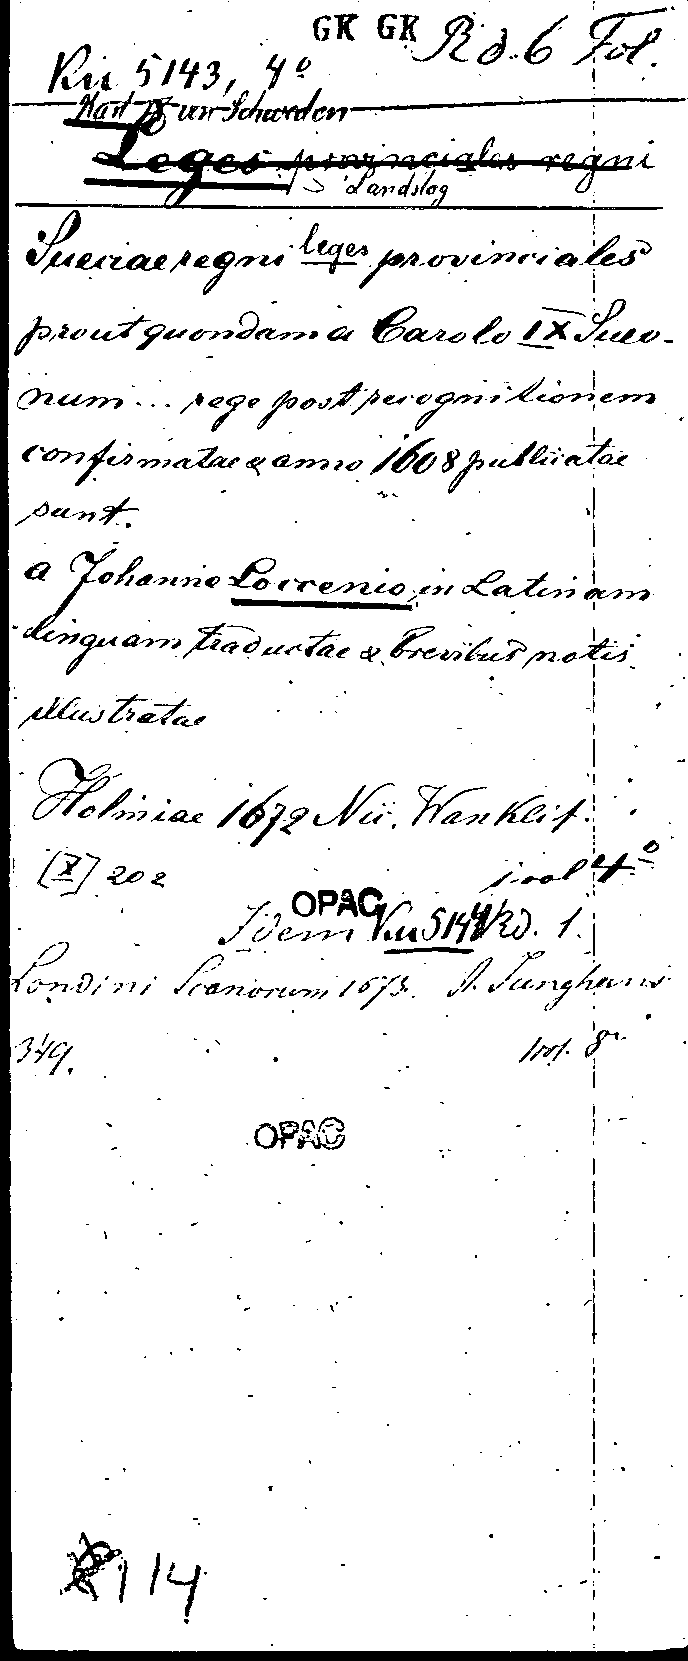 GK GK Rd. 6 Fol.
Ku 5143, 4°
Karl IX von Schweden
Leges provinciales regni
Landslag
Sueciae regni leges provinciales
prout quondam a Carolo IX Sueo-
num ... rege post recognitionem
confirmatae & anno 1608 publicatae
sunt.
a Johanne Loccenio in Latinam
linguam traductae & brevibus notis
illustratae
Holmiae 1672 Nic. Wanklif.
[X] 202 1 vol 4°
OPAC
Idem Ku 5144 Rd. 1.
Londini Scanorum 1673. Junghans
349. 1 vol. 8°
OPAC
114